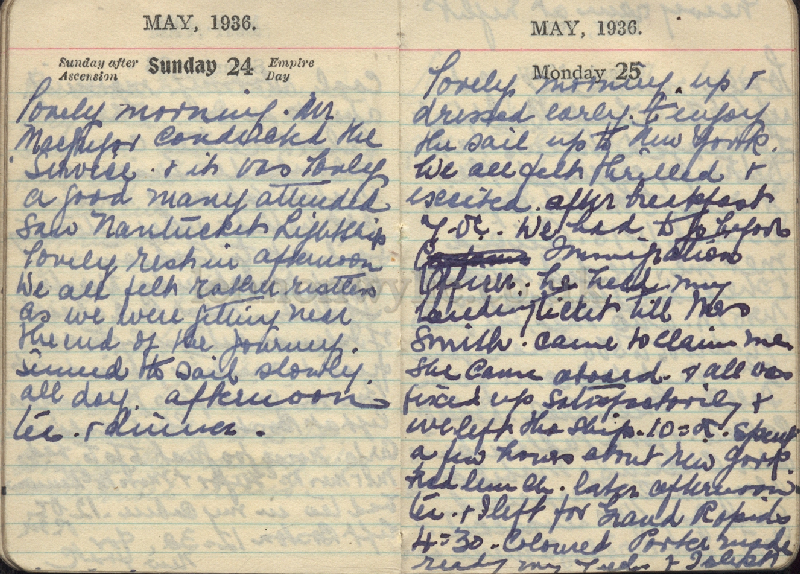 MAY, 1936.
Sunday after Ascension Sunday 24 Empire Day
Lovely morning. Mr
MacGregor conducted the
Service. & it was lovely
a good many attended
Saw Nantucket Lightship
lovely rest in afternoon
We all felt rather restless
as we were getting near
the end of the journey.
Seemed to sail slowly
all day. afternoon
tea. & dinner.
MAY, 1936.
Monday 25
Lovely morning. up &
dressed early. to enjoy
the sail up to New York.
We all felt thrilled &
excited. after breakfast
We had to go before
Immigration
Officer. he held my
landing ticket till Mrs
Smith. came to claim me
She came aboard. & all was
fixed up satisfactorily &
we left the ship. 10=05. spent
a few hours about New York
had lunch. later afternoon
tea. & I left for Grand Rapids
4=30. Coloured Porter made
ready my & I slept